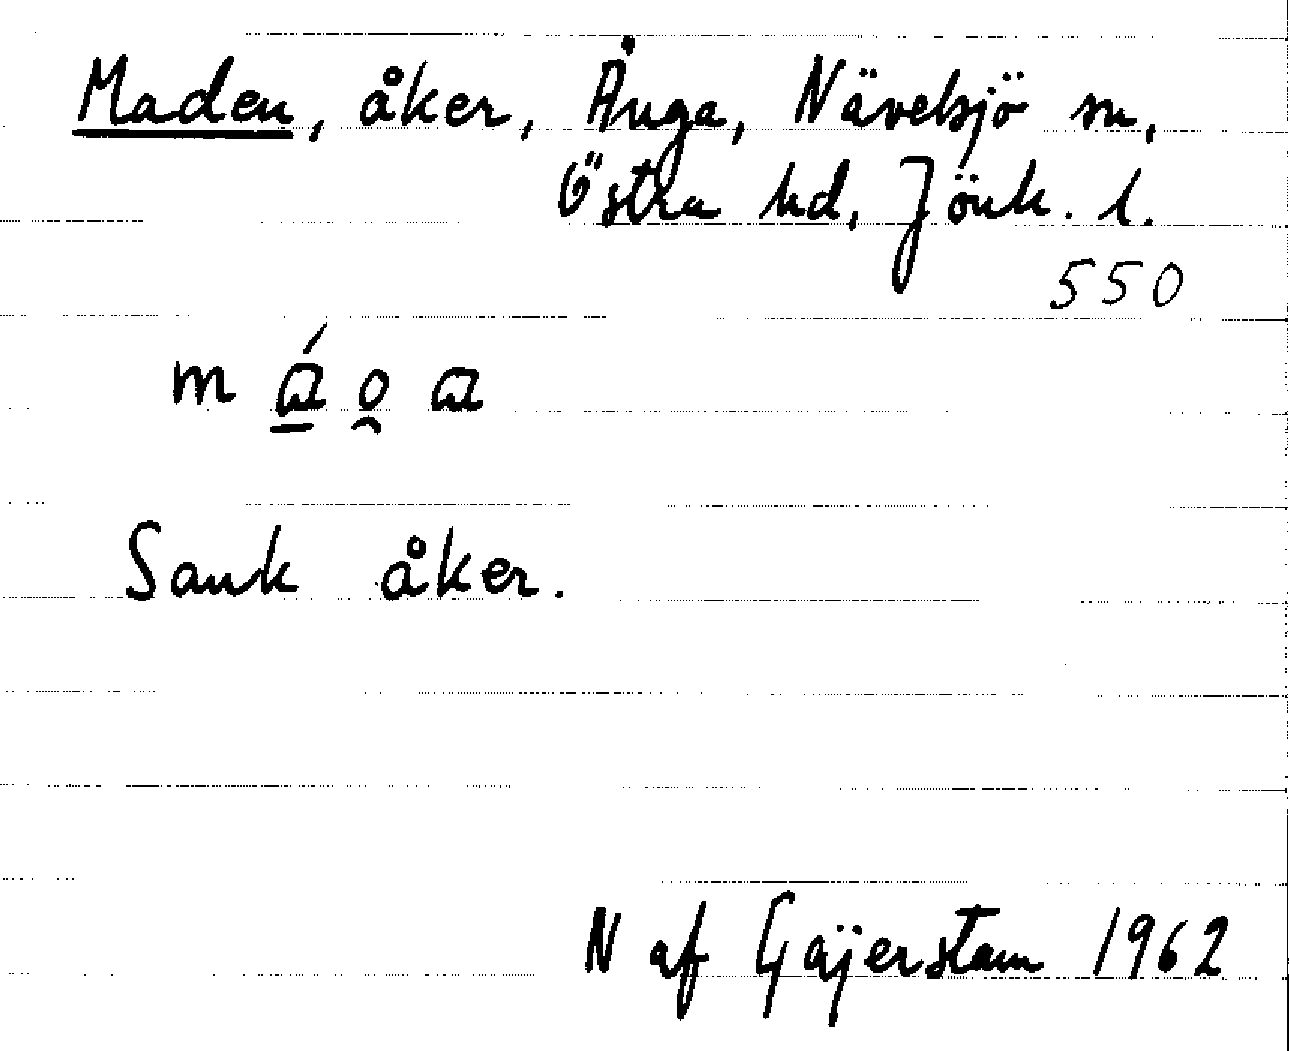 Maden, åker, Ånga, Nävelsjö sn,
Östra hd, Jönk. l.
550
m ɑ̱́ o̯ ɑ
Sank åker.
N af Gäjerstam 1962